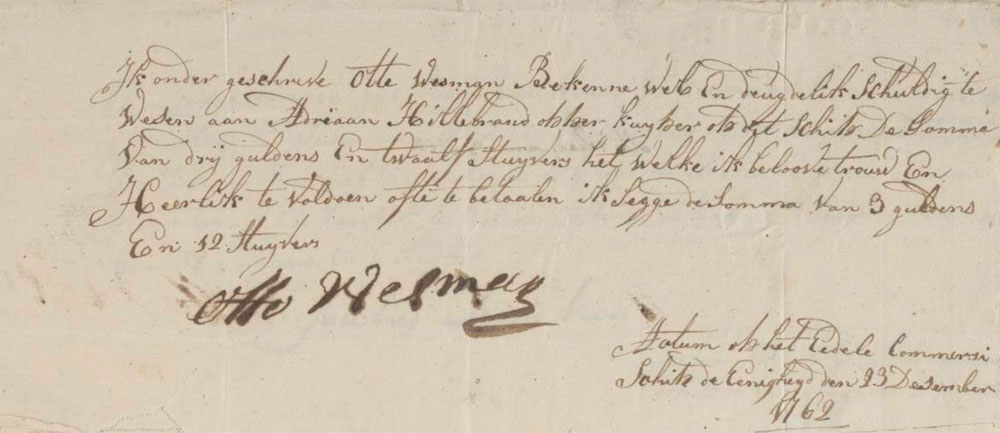 Ik onder geschreve Otte Wesman Bekenne Wel En deugdelik Schuldig te
Wesen aan Adriaan Hillebrand opper kuyper op dit Schip De Somma
Van drij guldens En twaalf Stuyvers het Welke ik beloove trouw En
Heerlik te Voldoen ofte betaalen ik Segge de Somma Van 3 guldens
En 12 Stuyvers
Otto Wesman
Actum op het Eedele Commersi
Schip de Eenigheyd den 23 Desember
1762